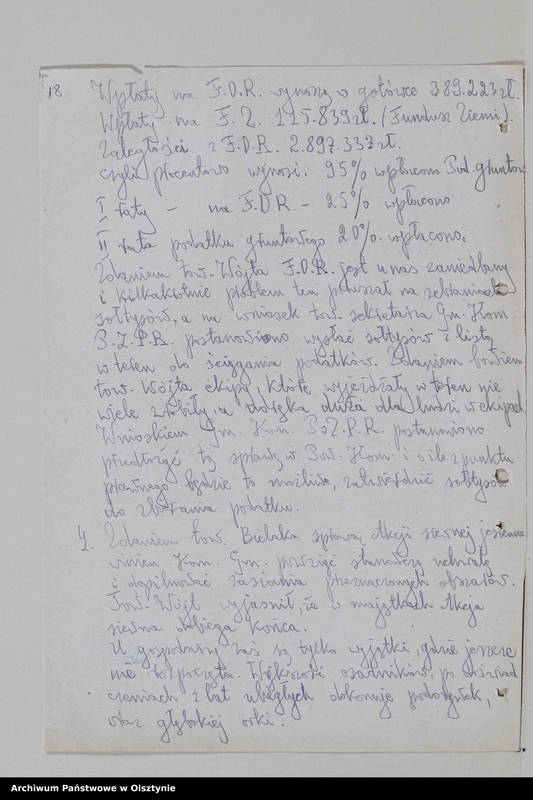 18
Wpłaty na F.O.R. wynoszą w gotówce 389.223 zł.
Wpłaty na F.Z. 115.839 zł. (Fundusz Ziemi).
Zaległości z F.O.R. 2.897.337 zł.
czyli procentowo wynosi: 95% wpłacono Pod. gruntow
I raty – na F.O.R. – 25% wpłacono
II rata podatku gruntowego 20% wpłacono.
Zdaniem tow. Wójta F.O.R. jest u nas zaniedbany
i kilkakrotnie problem ten poruszał na zebraniach
sołtysów, a na wniosek tow. sekretarza Gm. Kom.
P.Z.P.R. postanowiono wysłać sołtysów z listą
w teren do ściągania podatków. Zdaniem bowiem
tow. Wójta ekipy, które wyjeżdżały w teren nie
wiele zrobiły, a duża dla ludzi w ekipach
Wnioskiem Gm. Kom. P.Z.P.R. postanowiono
przedłożyć tą sprawę w Pow. Kom. i o ile z punktu
prawnego będzie to możliwe, zatwierdzić sołtysów
do zbierania podatku.
4. Zdaniem tow. Bielaka sprawą Akcji siewnej jesienne
winien Kom. Gm. powziąć stanowczą uchwałę
i dopilnować zasiania przeznaczonych obszarów.
Tow. Wójt wyjaśnił, że w majątkach Akcja
siewna dobiega końca.
U gospodarzy zaś są tylko wyjątki, gdzie jeszcze
nie rozpoczęta. Większość osadników, po doświad
czeniach z lat ubiegłych dokonuje podorywek,
oraz głębokiej orki.
Archiwum Państwowe w Olsztynie